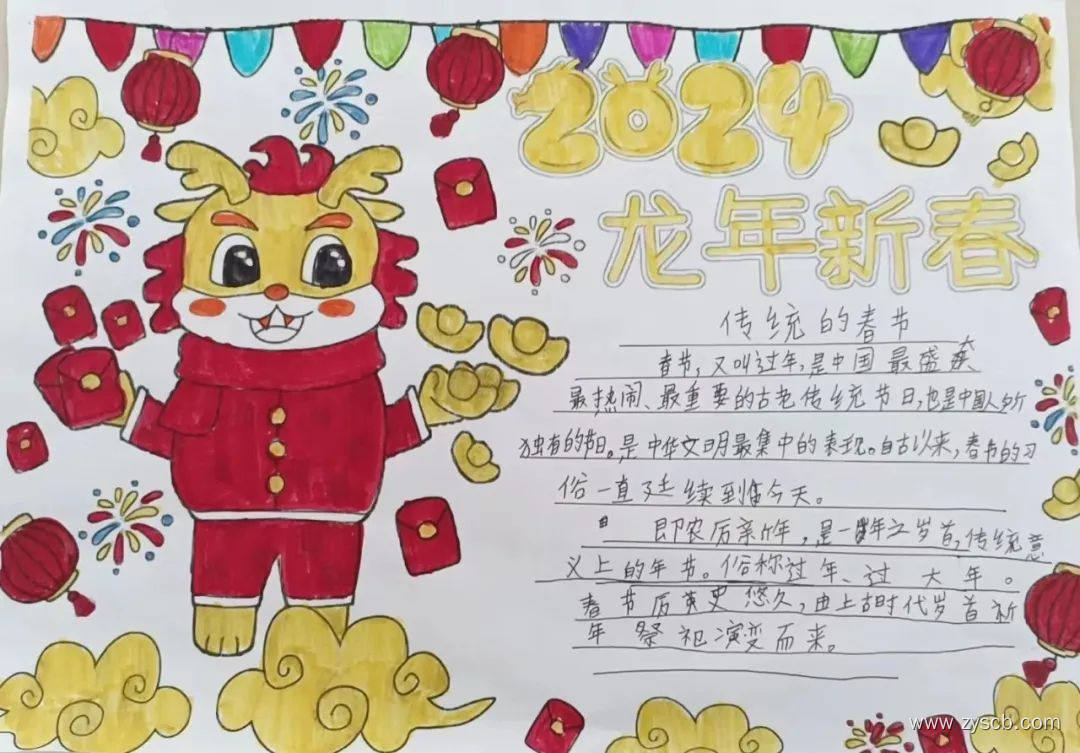 2024
龙年新春
传统的春节
春节,又叫过年,是中国最盛大
最热闹、最重要的古老传统节日,也是中国人所
独有的节日。是中华文明最集中的表现。自古以来,春节的习
俗一直延续到临今天。
日 即农历新年,是一年之岁首,传统意
义上的年节。俗称过年、过大年。
春节历史悠久,由上古时代岁首祈
年祭祀演变而来。
www.zyscb.com